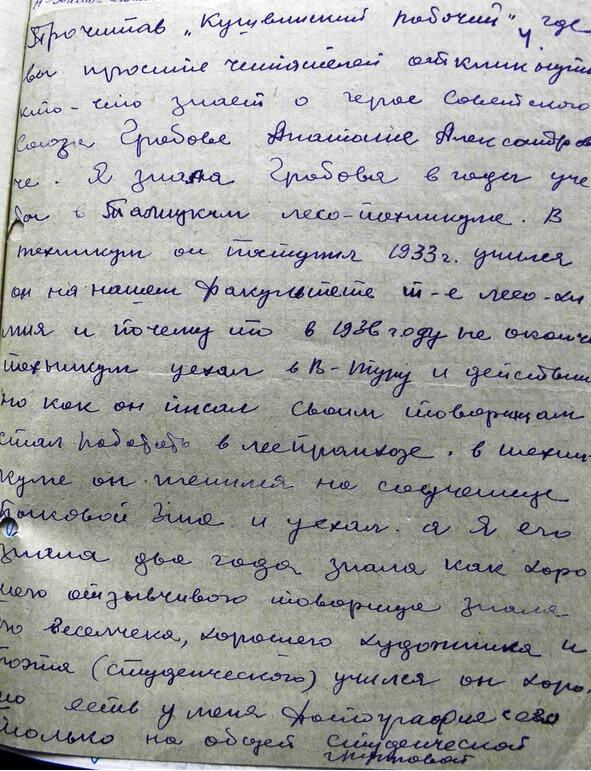 Прочитав „Кушвинский рабочий", где
вы просите читателей откликнуть
кто-что знает о герое Советского
Союза Гробове Анатолие Александров
че. Я знала Гробова в годы уче
бы в Талицким лесо-техникуме. В
техникум он поступил 1933г. учился
он на нашем факультете т-е лесо-хи
мия и почему то в 1936 году не оконч
техникум уехал в В-Туру и действи
но как он писал своим товарищам
стал работать в леспромхозе. в техни
куме он женился на соученице
Зине и уехал. а я его
знала два года знала как хоро
шего отзывчивого товарища знала
го веселчека, хорошего художника и
поэта (студенческого) учился он хоро.
но есть у меня фотография его
только на общей студенческой
групповой